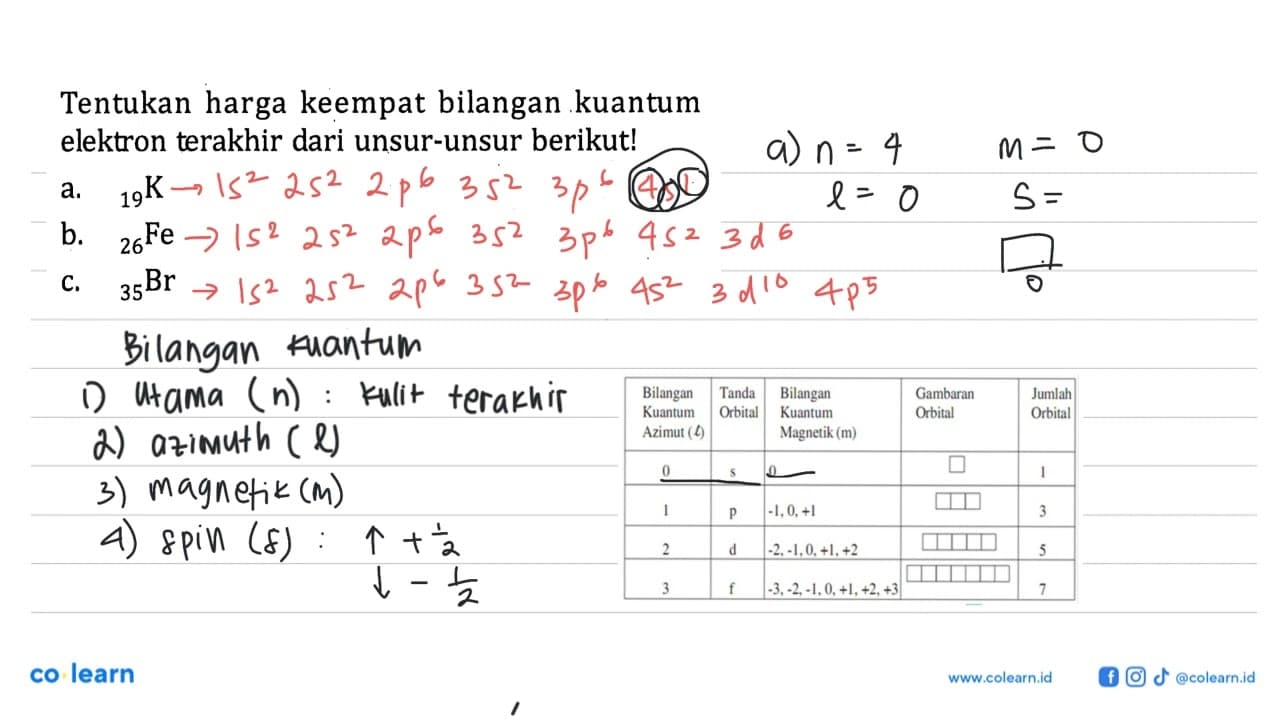 Tentukan harga keempat bilangan kuantum
elektron terakhir dari unsur-unsur berikut!
a. ₁₉K → 1s² 2s² 2p⁶ 3s² 3p⁶ 4s¹
b. ₂₆Fe → 1s² 2s² 2p⁶ 3s² 3p⁶ 4s² 3d⁶
c. ₃₅Br → 1s² 2s² 2p⁶ 3s² 3p⁶ 4s² 3d¹⁰ 4p⁵
a) n = 4 m = 0
l = 0 s =
0
Bilangan kuantum
1) Utama (n) : kulit terakhir
2) azimuth (l)
3) magnetik (m)
4) spin (s) : ↑ + 1/2
↓ - 1/2
Bilangan Kuantum Azimut (ℓ) Tanda Orbital Bilangan Kuantum Magnetik (m) Gambaran Orbital Jumlah Orbital
0 s 0 1
1 p -1, 0, +1 3
2 d -2, -1, 0, +1, +2 5
3 f -3, -2, -1, 0, +1, +2, +3 7
co learn
www.colearn.id @colearn.id